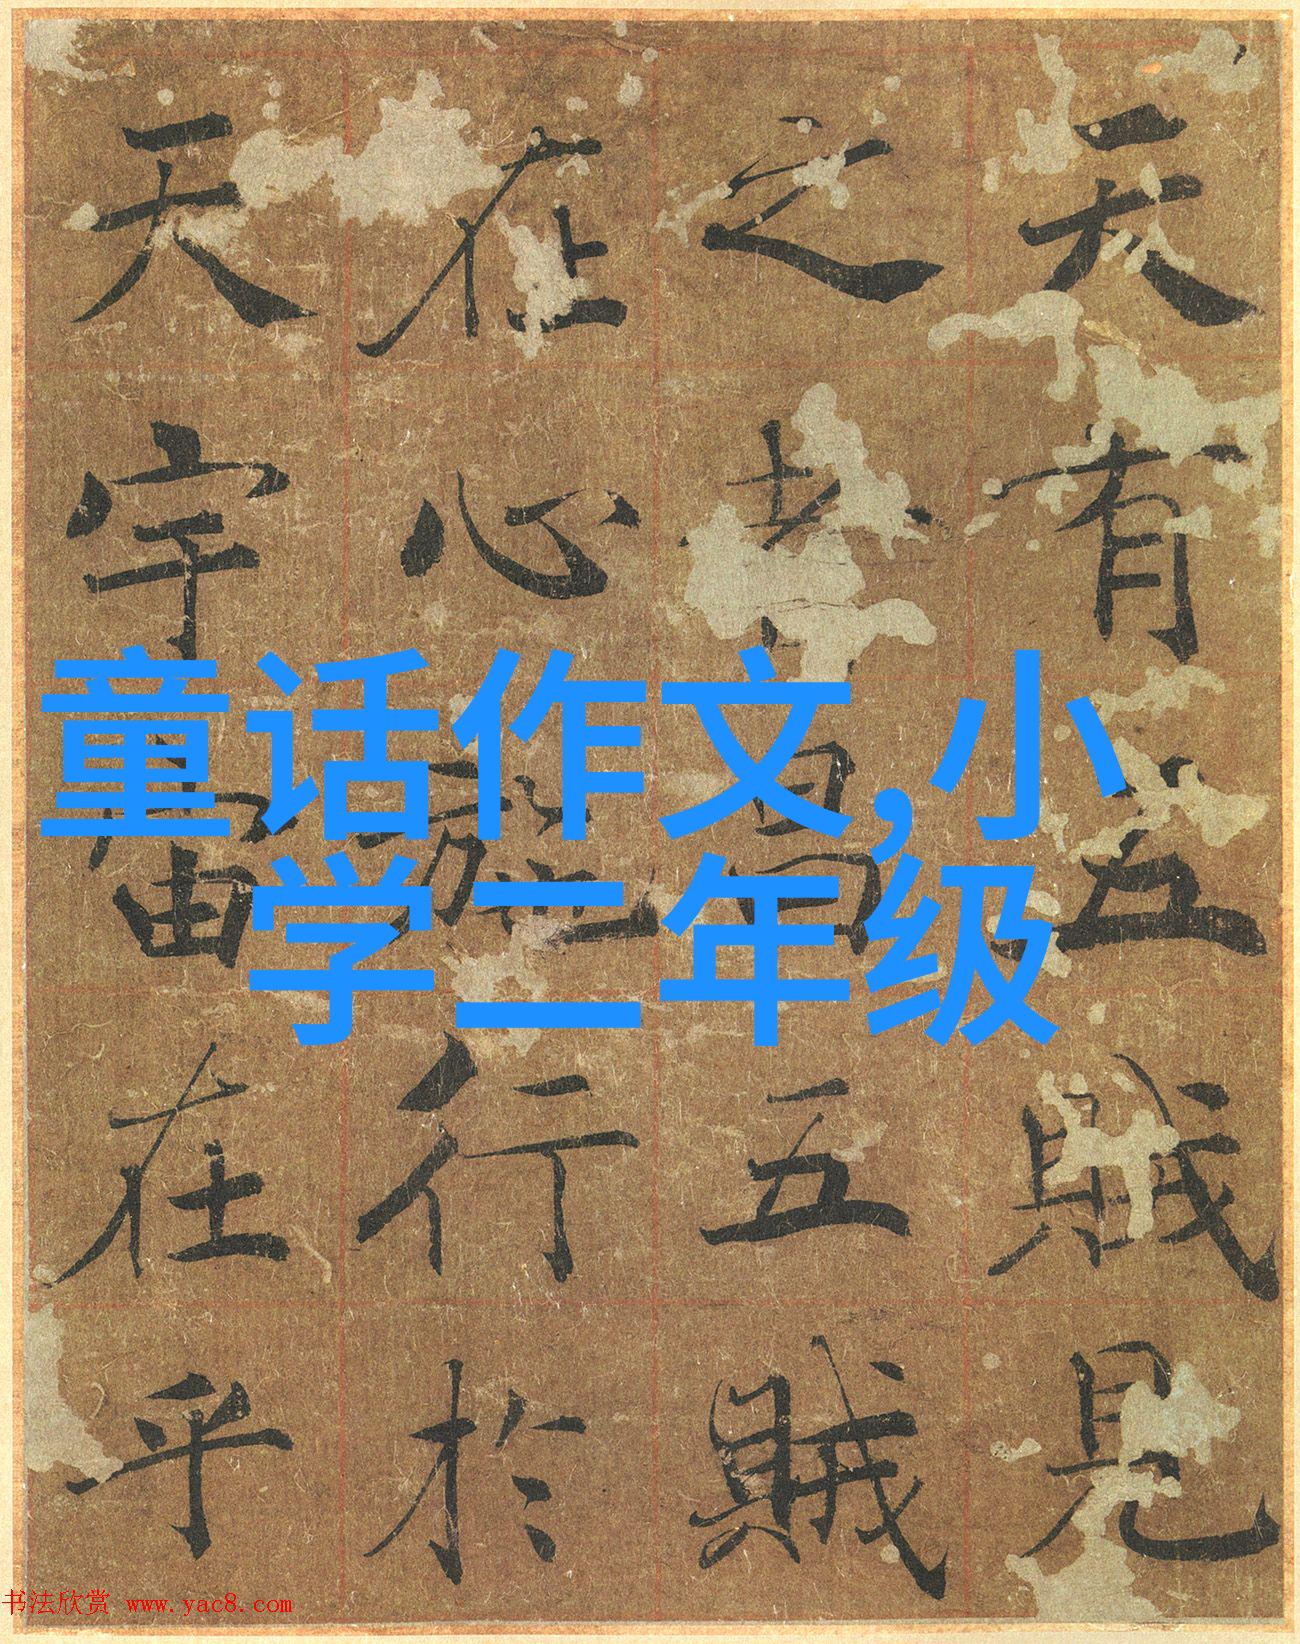 天有五賊見
之者昌五賊
在心施行於
天宇宙在乎
童话作文,小
学二年级
书法欣赏 www.yac8.com